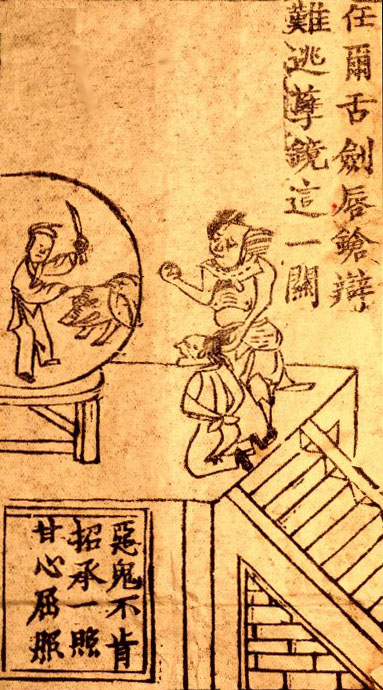 任爾舌劍唇鎗辯
難逃孽鏡這一關
惡鬼不肯
招承一照
甘心屈服